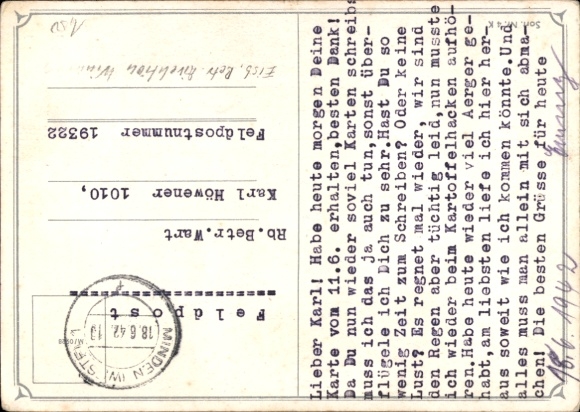 Lieber Karl! Habe heute morgen Deine
Karte vom 11.6. erhalten,besten Dank!
Da Du nun wieder soviel Karten schreibs
muss ich das ja auch tun,sonst über-
flügele ich Dich zu sehr.Hast Du so
wenig Zeit zum Schreiben? Oder keine
Lust? Es regnet mal wieder, wir sind
den Regen aber tüchtig leid,nun musste
ich wieder beim Kartoffelhacken aufhö-
ren.Habe heute wieder viel Aerger ge-
habt,am liebsten liefe ich hier her-
aus soweit wie ich kommen könnte.Und
alles muss man allein mit sich abma-
chen! Die besten Grüsse für heute
18.6.1942
Feldpost
Rb.Betr.Wart
Karl Höwener 1010,
Feldpostnummer 19322
Eisb. Betr.
MINDEN (WESTF)
18.6.42